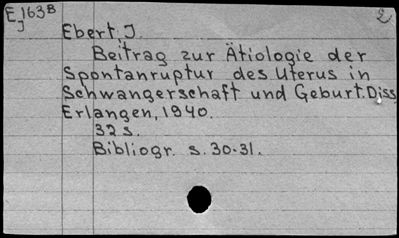 E163B
J
2
Ebert, J.
Beitrag zur Ätiologie der
Spontanruptur des Uterus in
Schwangerschaft und Geburt. Diss.
Erlangen, 1940.
32 s.
Bibliogr. s. 30-31.